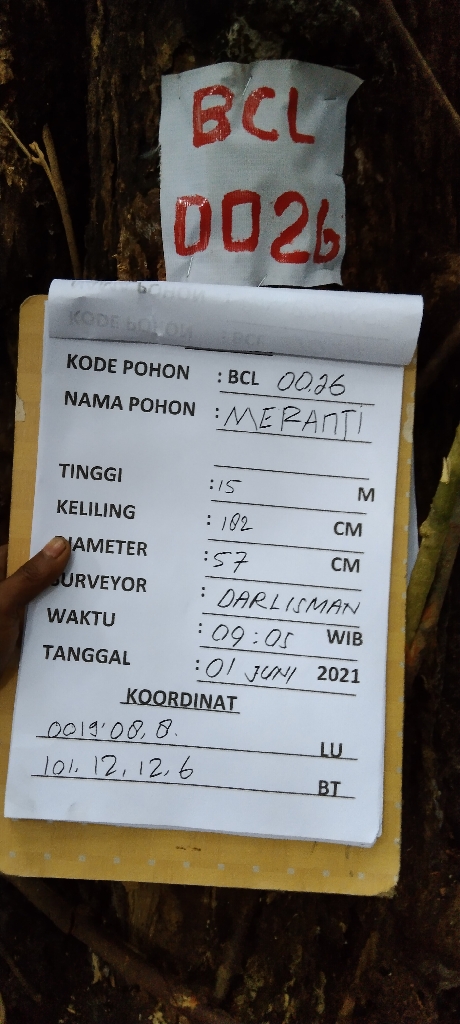 BCL
0026
KODE POHON : BCL 0026
NAMA POHON : MERANTI
TINGGI : 15 M
KELILING : 182 CM
DIAMETER : 57 CM
SURVEYOR : DARLISMAN
WAKTU : 09:05 WIB
TANGGAL : 01 JUNI 2021
KOORDINAT
0019'08,8. LU
101. 12, 12, 6 BT